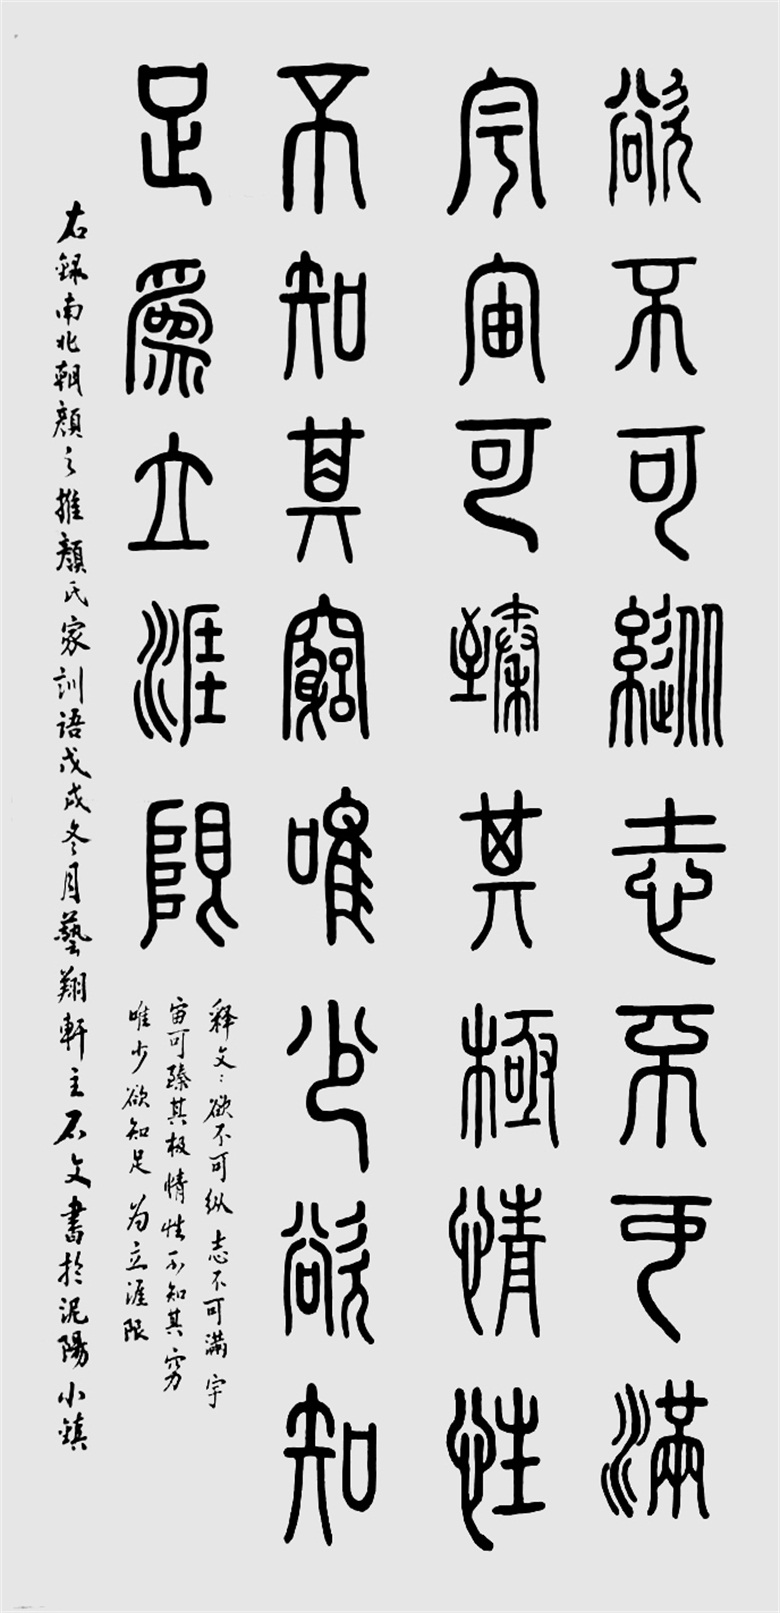 欲不可縱志不可滿
宇宙可臻其極情性
不知其窮唯少欲知
足爲立涯限
释文：欲不可纵志不可滿宇
宙可臻其极情性不知其穷
唯少欲知足为立涯限
右録南北朝顔之推顔氏家訓語戊戌冬月藝翔軒主石文書於泥陽小鎮